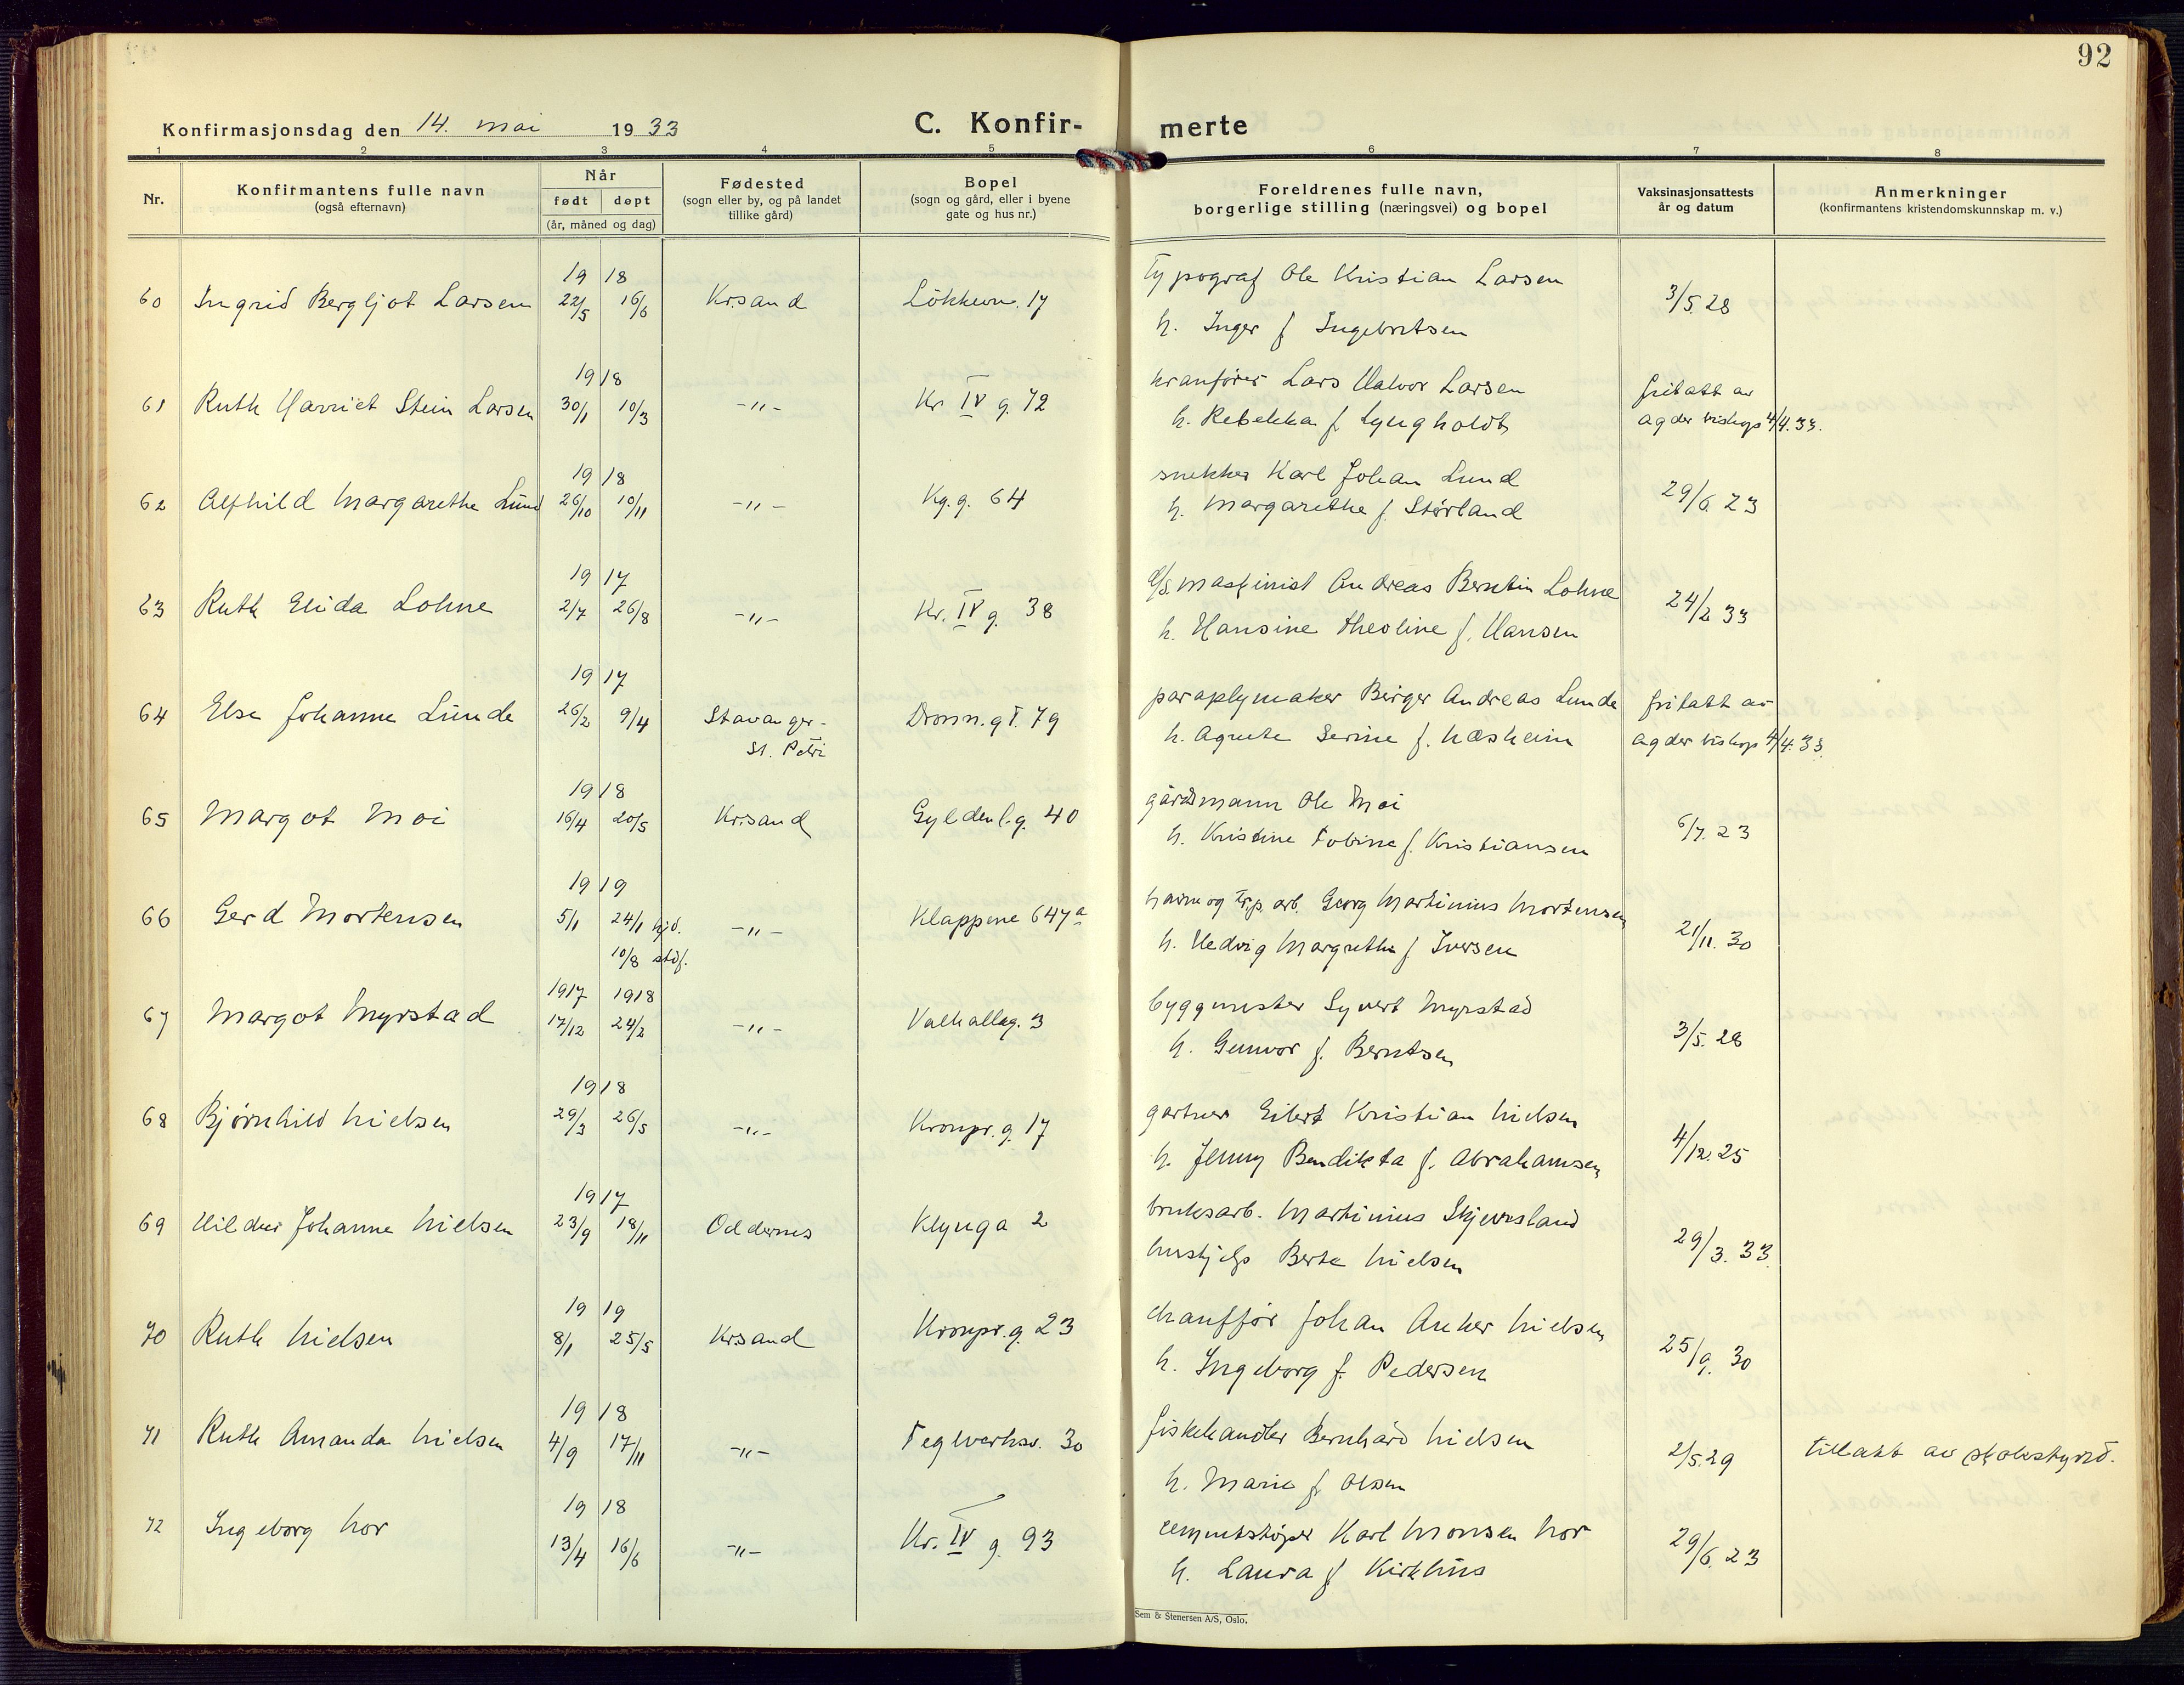 92
Konfirmasjonsdag den 14. mai 1933
C. Konfir-
merte
1 2 3 4 5 6 7 8
Nr.
Konfirmantens fulle navn
(også efternavn)
Når
født døpt
(år, måned og dag)
Fødested
(sogn eller by, og på landet
tillike gård)
Bopel
(sogn og gård, eller i byene
gate og hus nr.)
Foreldrenes fulle navn,
borgerlige stilling (næringsvei) og bopel
Vaksinasjonsattests
år og datum
Anmerkninger
(konfirmantens kristendomskunnskap m. v.)
19 18 Typograf Ole Kristian Larsen
60 Ingrid Bergljot Larsen 22/5 16/6 Krsand Løkkevn. 17 3/5 28
h. Inger f Ingebretsen
19 18 kranfører Lars Halvor Larsen fritatt av
61 Ruth Harriet Stein Larsen 30/1 10/3 -"- Kr IV g. 72
h. Rebekka f Lyngholdt agder biskop 4/4.33.
19 18 snekker Karl Johan Lund
62 Alfhild Margarethe Lund 26/10 10/11 -"- Kg. g. 64 29/6 23
h. Margarethe f. Størland
19 17 d/s maskinist Andreas Berntin Lohne
63 Ruth Elida Lohne 2/7 26/8 -"- Kr. IV g. 38 24/2 33
h. Hansine Theoline f. Hansen
19 17 paraplymaker Birger Andreas Lunde fritatt av
64 Else Johanne Lunde 26/2 9/4 Stavanger- Dronn. g T. 79
St. Petri h. Agnete Serine f. Næsheim agder biskop 4/4.33.
19 18 gårdsmann Ole Moi
65 Margot Moi 16/4 20/5 Krsand Gyldenl. g. 40 6/7. 23
h. Kristine Tobine f. Kristiansen
19 19 havne og Trp. arb. Georg Martinius Mortensen
66 Gerd Mortensen 5/1 24/1 hjd. -"- Klappene 647a 21/11. 30
10/8 stdf. h. Hedvig Margrethe f Iversen
1917 1918 byggmester Syvert Myrstad
67 Margot Myrstad 17/12 24/2 -"- Valhallag. 3 3/5. 28
h. Gunvor f. Berntsen
19 18
68 Bjørnhild Nielsen 29/3 26/5 -"- Kronpr. g. 17 gartner Eilert Kristian Nielsen 4/12. 25
h. Jenny Bendikta f. Abrahamsen
19 17 bruksarb. Martinius Skjevesland
69 Hildur Johanne Nielsen 23/9 18/11 Oddernes Klynga 2 29/3. 33.
hushjelp Berta Nielsen
19 19 chauffør Johan Anker Nielsen
70 Ruth Nielsen 8/1 25/5 Krsand Kronpr. g. 23 25/9. 30
h. Ingeborg f. Pedersen
19 18 fiskehandler Bernhard Nielsen
71 Ruth Amanda Nielsen 4/9 17/11 -"- Teglverksv. 30 2/5. 29 tillatt av skolestyret.
h. Marie f Olsen
19 18
72 Ingeborg Nor 13/4 16/6 -"- Kr. IV g. 93 cementstøper Karl Monsen Nor 29/6. 23
h. Laura f Kirkhus
Sem & Stenersen A/S, Oslo.